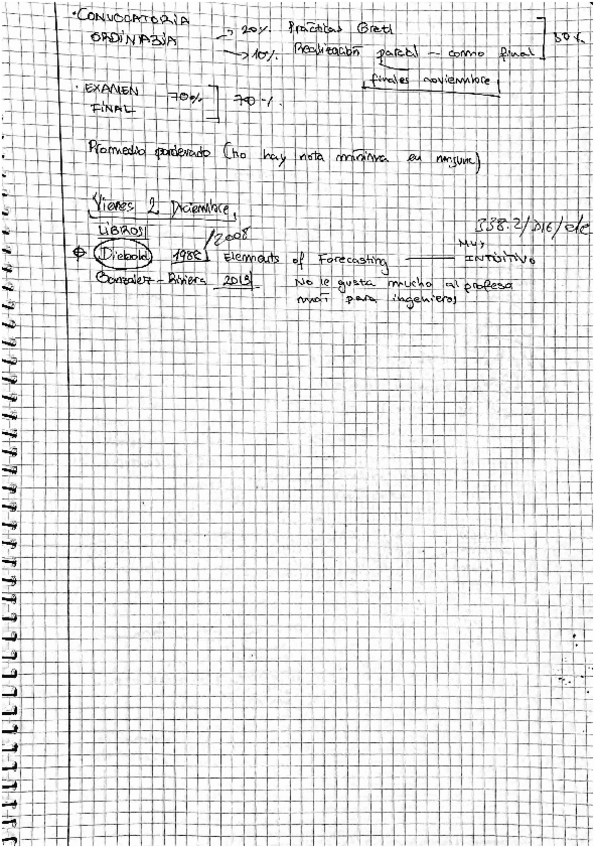 · CONVOCATORIA → 20% Prácticas Gretl
ORDINARIA → 10% Realización parcial – como final ] 30%
finales noviembre
· EXAMEN FINAL 70% ] 70%
Promedio ponderado (no hay nota mínima en ninguno)
Viernes 2 Diciembre,
LIBROS 338.2/DIE/ele
Diebold 1988/2008 Elements of Forecasting —— MUY INTUITIVO
Gonzalez-Riviera 2013 No le gusta mucho al profesor
para ingenieros